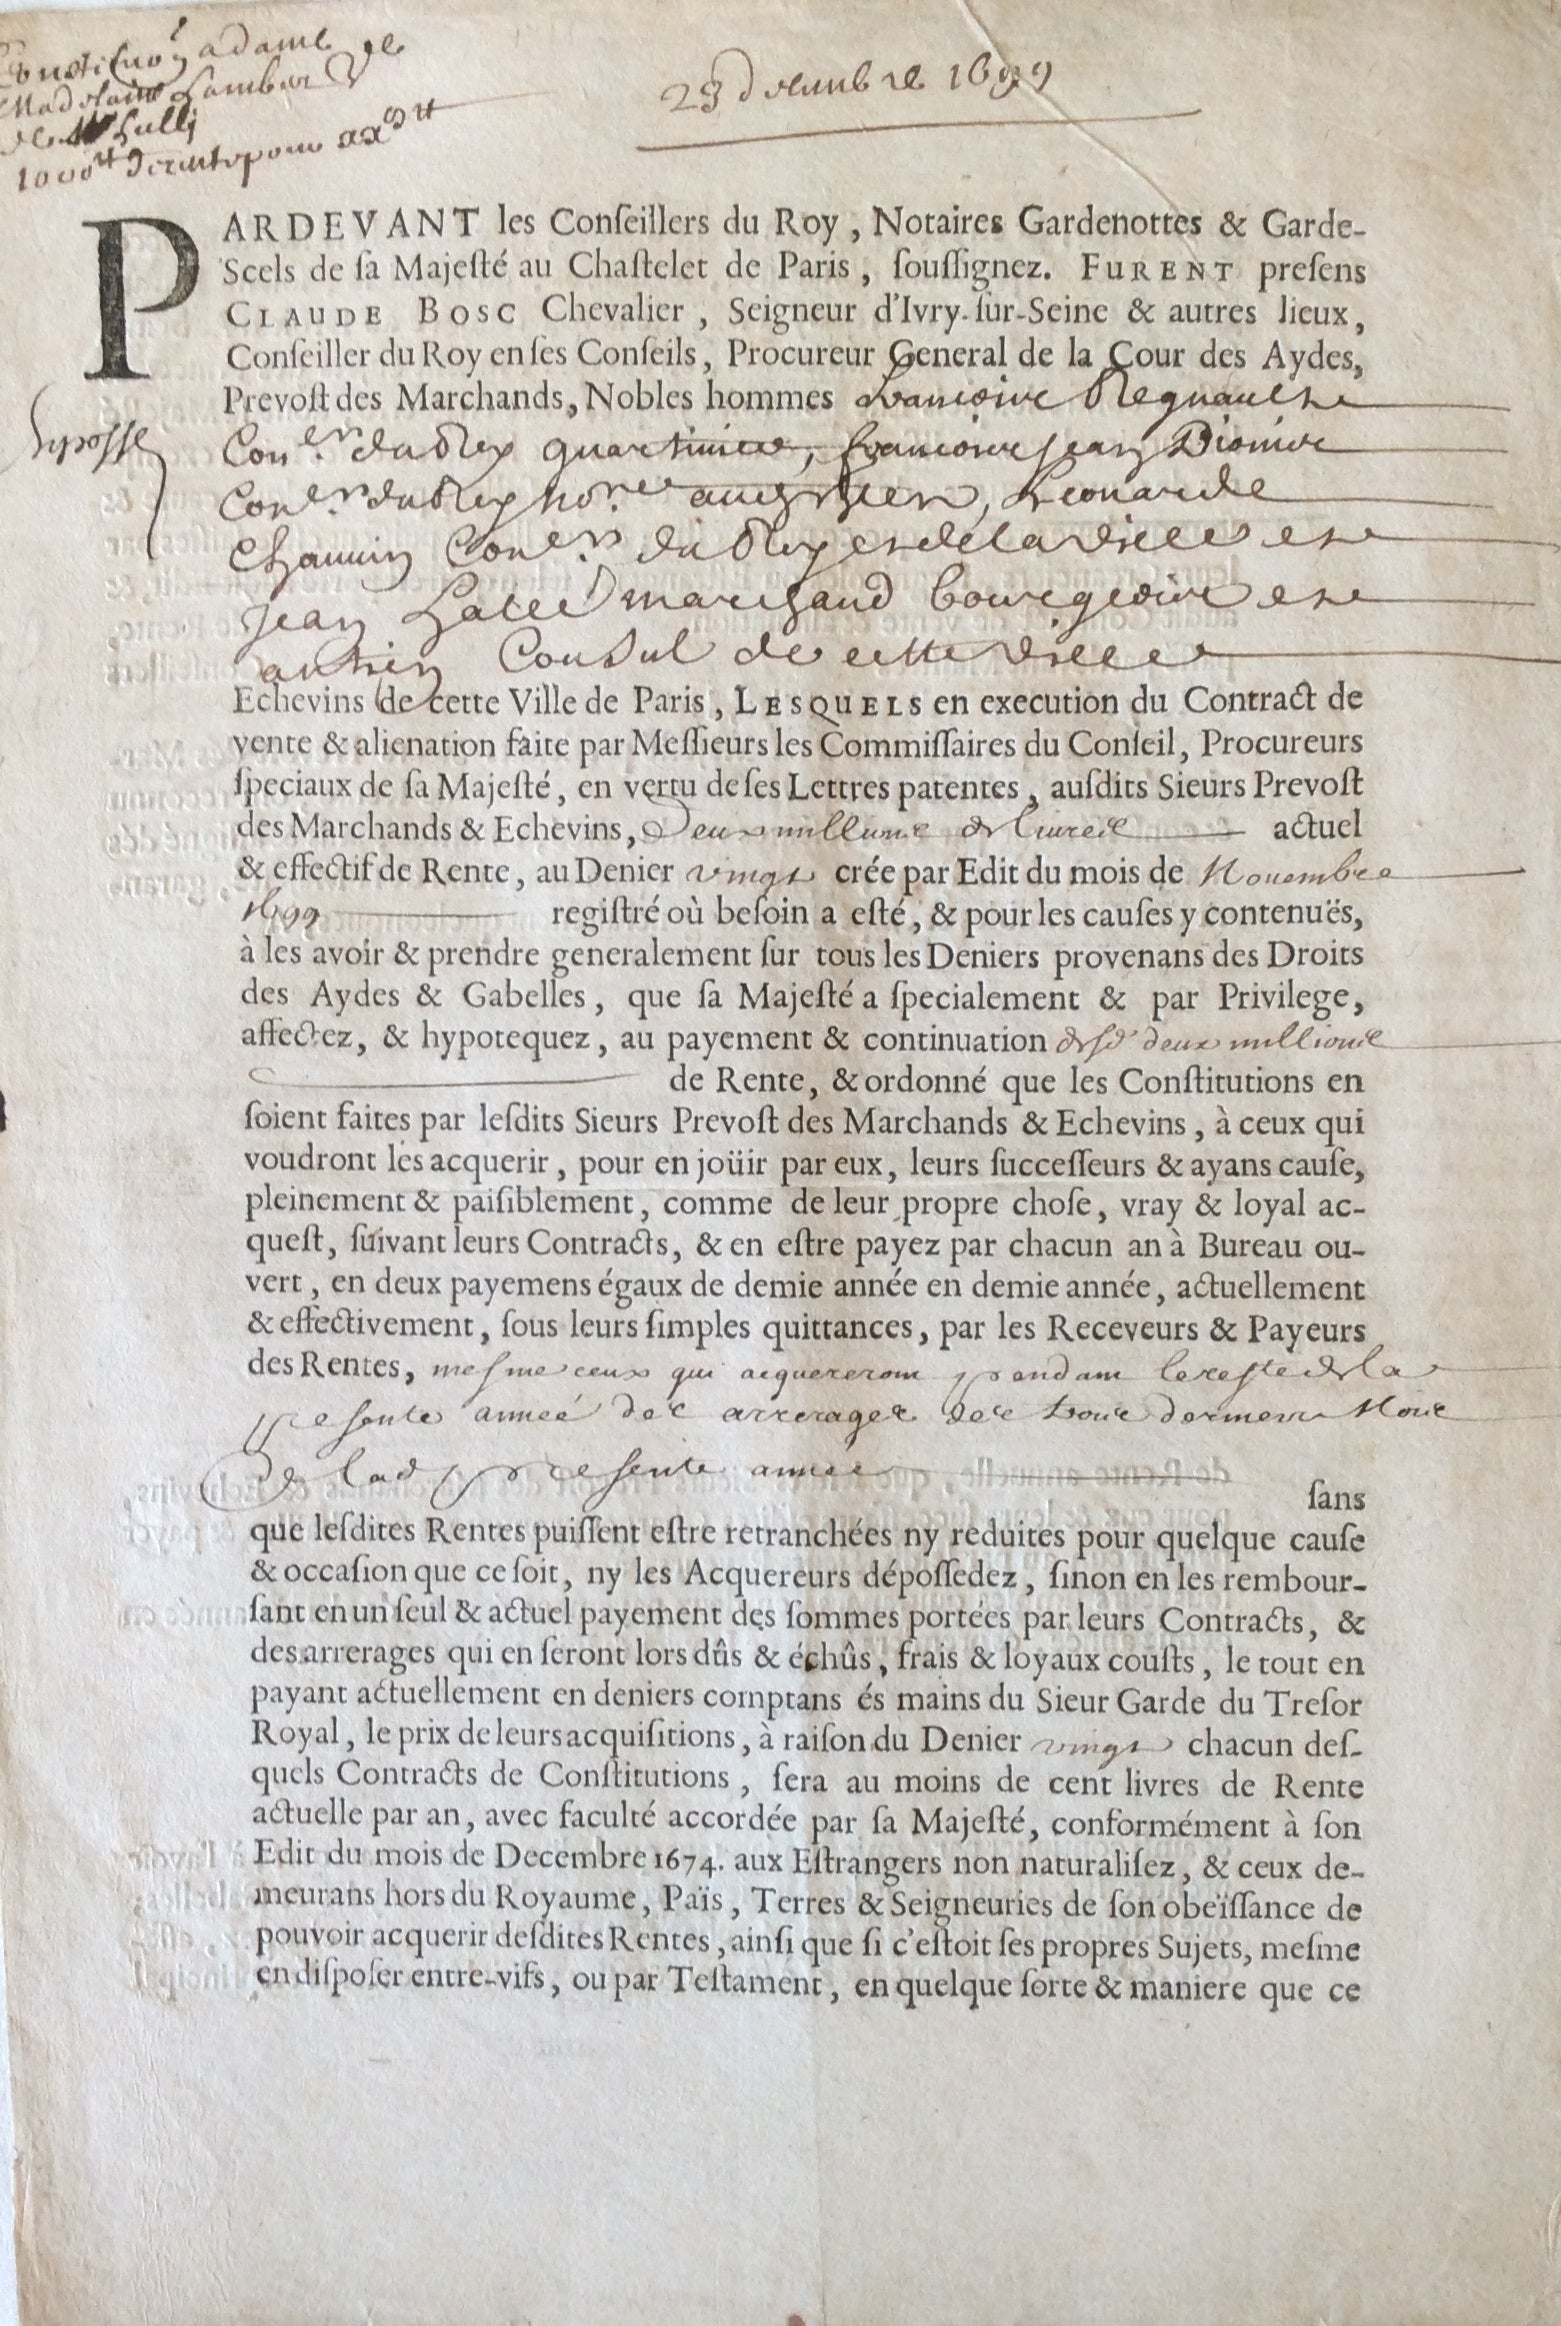 Constituõn a dame
Madelaine Lambert Ve
de Mr Lully
1000ᵗᵗ de rente pour xxᵐᵗᵗ
23 decembre 1699
PARDEVANT les Conſeillers du Roy, Notaires Gardenottes & Garde-
Scels de ſa Majeſté au Chaſtelet de Paris, ſouſſignez. FURENT preſens
CLAUDE BOSC Chevalier, Seigneur d'Ivry-ſur-Seine & autres lieux,
Conſeiller du Roy en ſes Conſeils, Procureur General de la Cour des Aydes,
Prevoſt des Marchands, Nobles hommes François Regnault
Conᵉʳ du Roy quartinier, François Jean Dionis
Conᵉʳ du Roy noʳᵉ
Conᵉʳ du Roy et de la ville et
Jean marchand bourgeois et
antien Consul de cette ville
Echevins de cette Ville de Paris, LESQUELS en execution du Contract de
vente & alienation faite par Meſſieurs les Commiſſaires du Conſeil, Procureurs
ſpeciaux de ſa Majeſté, en vertu de ſes Lettres patentes, auſdits Sieurs Prevoſt
des Marchands & Echevins, Deux millions de livres actuel
& effectif de Rente, au Denier vingt crée par Edit du mois de Novembre
1699 regiſtré où beſoin a eſté, & pour les cauſes y contenuës,
à les avoir & prendre generalement ſur tous les Deniers provenans des Droits
des Aydes & Gabelles, que ſa Majeſté a ſpecialement & par Privilege,
affectez, & hypotequez, au payement & continuation desd deux millions
de Rente, & ordonné que les Conſtitutions en
ſoient faites par leſdits Sieurs Prevoſt des Marchands & Echevins, à ceux qui
voudront les acquerir, pour en joüir par eux, leurs ſucceſſeurs & ayans cauſe,
pleinement & paiſiblement, comme de leur propre choſe, vray & loyal ac-
queſt, ſuivant leurs Contracts, & en eſtre payez par chacun an à Bureau ou-
vert, en deux payemens égaux de demie année en demie année, actuellement
& effectivement, ſous leurs ſimples quittances, par les Receveurs & Payeurs
des Rentes, meſme ceux qui acquereront pendant le reſte de la
preſente année des arrerages des trois derniers mois
De lad preſente année
ſans
que leſdites Rentes puiſſent eſtre retranchées ny reduites pour quelque cauſe
& occaſion que ce ſoit, ny les Acquereurs dépoſſedez, ſinon en les rembour-
ſant en un ſeul & actuel payement des ſommes portées par leurs Contracts, &
des arrerages qui en ſeront lors dûs & échûs, frais & loyaux couſts, le tout en
payant actuellement en deniers comptans és mains du Sieur Garde du Treſor
Royal, le prix de leurs acquiſitions, à raiſon du Denier vingt chacun deſ-
quels Contracts de Conſtitutions, ſera au moins de cent livres de Rente
actuelle par an, avec faculté accordée par ſa Majeſté, conformément à ſon
Edit du mois de Decembre 1674. aux Eſtrangers non naturaliſez, & ceux de-
meurans hors du Royaume, Païs, Terres & Seigneuries de ſon obeïſſance de
pouvoir acquerir deſdites Rentes, ainſi que ſi c'eſtoit ſes propres Sujets, meſme
en diſpoſer entre-vifs, ou par Teſtament, en quelque ſorte & maniere que ce